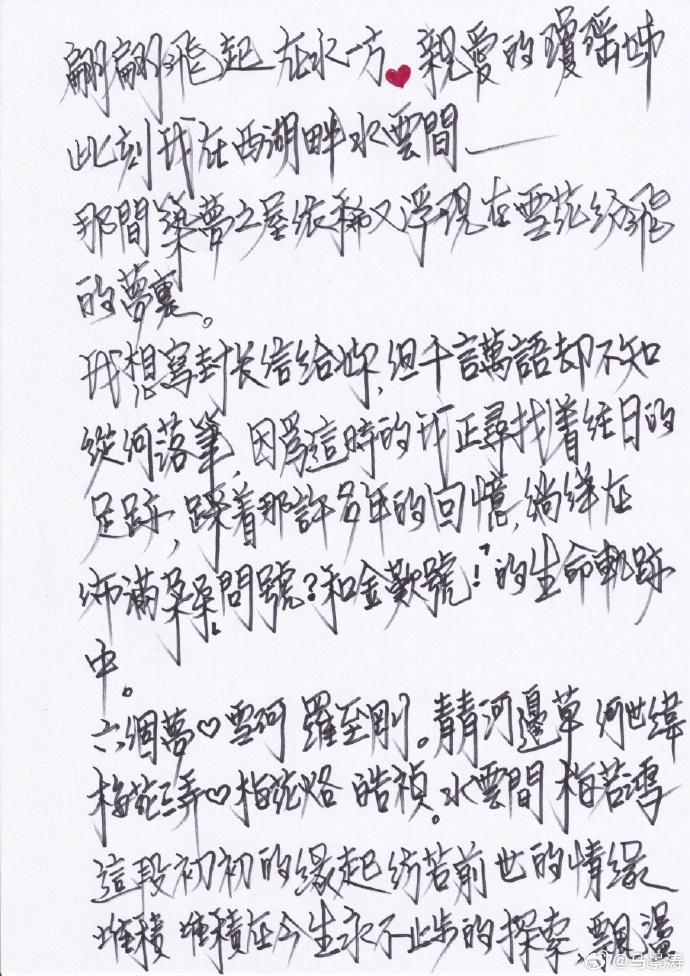 翩翩飛起在水一方❤親愛的瓊瑤姊
此刻我在西湖畔水雲間——
那間築夢之屋依稀又浮現在雪花紛飛
的夢裏。
我想寫封长信给妳,但千言萬語却不知
從何落筆,因爲這時的我正尋找着往日的
足跡,踩着那許多年的回憶,徜徉在
佈滿桑桑問號?和金歎號!的生命軌跡
中。
六個夢♡雪河 羅至剛。青青河邊草 何世緯
梅花三弄♡梅花烙 皓禎。水雲間 梅若鴻
這段初初的緣起彷若前世的情缘
堆積 堆積在今生永不止步的探索,飄盪
@马景涛